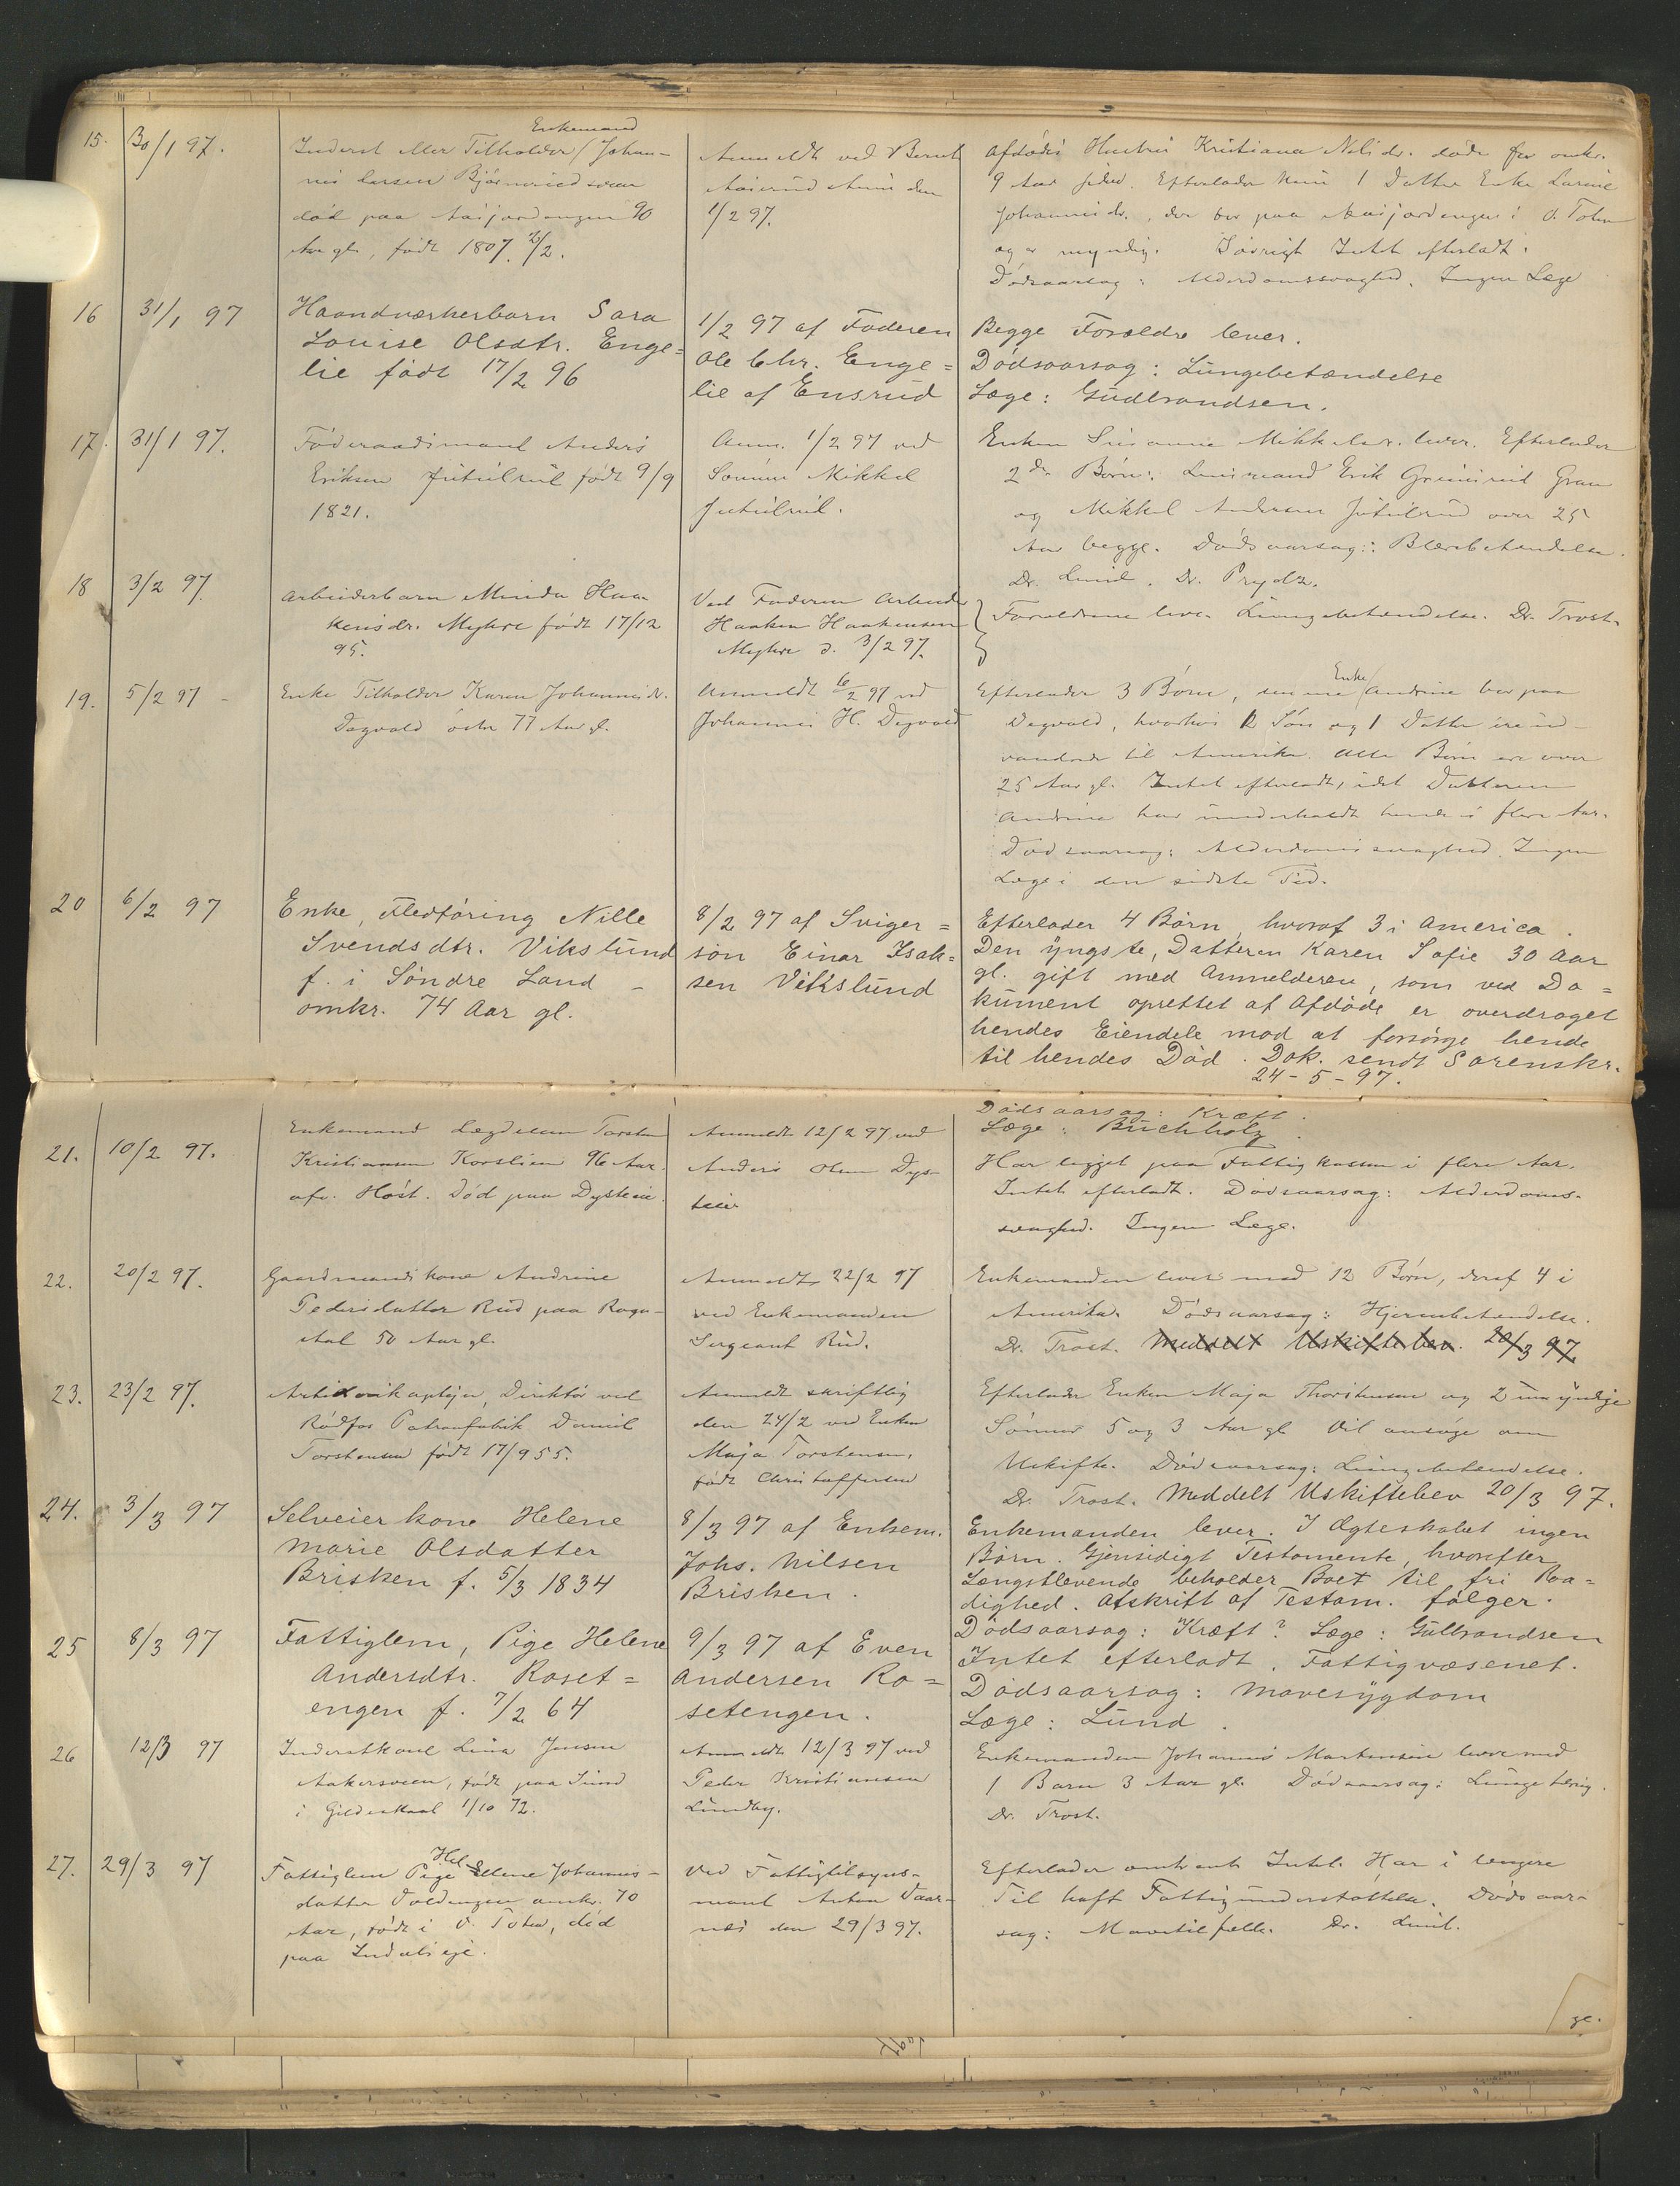 15. 30/1 97.
Enkemand
Inderst eller Tilholder / Johan-
nes Larsen Bjørnerudsveen
død paa Aasjordengen 90
Aar gl., født 1807. 2/2.
Anmeldt ved Bernt
Aaserud Annex den
1/2 97.
Afdødes Hustru Kristiana Nilsdr. døde for omkr.
9 Aar siden. Efterlader kun 1 Datter Enke Larine
Johannesdr., der bor paa Aasjordengen i V. Toten
og er myndig. Iøvrigt Intet efterladt.
Dødsaarsag: Alderdomssvaghed. Ingen Læge
16 31/1 97
Haandværkerbarn Sara
Louise Olsdtr. Enge=
lie født 17/2 96
1/2 97 af Faderen
Ole Chr. Enge=
lie af Ensrud
Begge Forældre lever.
Dødsaarsag: Lungebetændelse
Læge: Gudbrandsen.
17. 31/1 97.
Føderaadsmand Anders
Eriksen Jutulrud født 9/9
1821.
Anm. 1/2 97 ved
Sønnen Mikkel
Jutulrud.
Enken Susanne Mikkelsdr. lever. Efterlader
2de Børn: Lensmand Erik Grinirud Gran
og Mikkel Andersen Jutulrud over 25
Aar begge. Dødsaarsag: Blærebetændelse.
Dr. Lund. Dr. Prydz.
18 3/2 97.
Arbeiderbarn Minda Haa-
kensdr. Myhre født 17/12
95.
Ved Faderen Arbeider
Haaken Haakensen
Myhre d. 3/2 97.
Forældrene lever. Lungebetændelse. Dr. Trost.
19. 5/2 97 -
Enke Tilholder Karen Johannesdr.
Degvold 77 Aar gl.
Anmeldt 6/2 97 ved
Johannes H. Degvold
Efterlader 3 Børn, Enke / Andrine bor paa
Degvold, hvorhos 1 Søn og 1 Datter ere ud-
vandrede til Amerika. Alle Børn ere over
25 Aar gl. Intet efterladt, idet Datteren
Andrine har underholdt hende i flere Aar.
Dødsaarsag: Alderdomssvaghed. Ingen
Læge i den sidste Tid.
20 6/2 97
Enke, Fledføring Nille
Svendsdtr. Vikslund
f. i Søndre Land -
omkr. 74 Aar gl.
8/2 97 af Sviger=
søn Einar Isak=
sen Vikslund
Efterlader 4 Børn, hvoraf 3 i America.
Den yngste, Datteren Karen Sofie 30 Aar
gl. gift med Anmelderen, som ved Do=
kument oprettet af Afdøde er overdraget
hendes Eiendele mod at forsørge hende
til hendes Død. Dok. sendt Sorenskr.
24-5-97.
Dødsaarsag: Kræft.
Læge: Buchholz.
21. 10/2 97.
Enkemand Lægdslem Torsten
Kristiansen Korslien 96 Aar.
Død paa Dysteeie.
Anmeldt 12/2 97 ved
Anders Olsen Dys-
teeie
Har ligget paa Fattigkassen i flere Aar.
Intet efterladt. Dødsaarsag: Alderdoms-
svaghed. Ingen Læge.
22. 20/2 97.
Gaardmandskone Andrine
Pedersdatter Rud paa Rogn-
stal 50 Aar gl.
Anmeldt 22/2 97
ved Enkemanden
Sergeant Rud.
Enkemanden lever med 12 Børn, deraf 4 i
Amerika. Dødsaarsag: Hjernebetændelse.
Dr. Trost. Meddelt Uskiftebev. 20/3 97.
23. 23/2 97.
Artillerikaptejn, Direktør ved
Rødfos Patronfabrik Daniel
Torstensen født 17/9 55.
Anmeldt skriftlig
den 24/2 ved Enken
Maja Torstensen,
født Christoffersen
Efterlader Enken Maja Thorstensen og 2 umyndige
Sønner 5 og 3 Aar gl. Vil ansøge om
Uskifte. Dødsaarsag: Lungebetændelse.
Dr. Trost. Meddelt Uskiftebev 20/3 97.
24. 3/3 97
Selveierkone Helene
Marie Olsdatter
Brisken f. 5/3 1834
8/3 97 af Enkem.
Johs. Nilsen
Brisken.
Enkemanden lever. I Ægteskabet ingen
Børn. Gjensidigt Testamente, hvorefter
Længstlevende beholder Boet til fri Raa=
dighed. Afskrift af Testam. følger.
Dødsaarsag: Kræft? Læge: Gulbrandsen
25 8/3 97
Fattiglem, Pige Helene
Andersdtr. Roset=
engen f. 7/2 64
9/3 97 af Even
Andersen Ro=
setengen.
Intet efterladt. Fattigvæsenet.
Dødsaarsag: Mavesygdom
Læge: Lund.
26 12/3 97
Inderstkone Lina Jensen
Aakersveen, født paa Sund
i Gildeskaal 1/10 72.
Anmeldt 12/3 97 ved
Peder Kristiansen
Lundby.
Enkemanden Johannes Martinsen lever med
1 Barn 3 Aar gl. Dødsaarsag: Lungetæring.
Dr. Trost.
27. 29/3 97
Hel
Fattiglem Pige Ellene Johannes-
datter Voldengen omkr. 70
Aar, født i V. Toten, død
paa Indalseje.
Ved Fattigtilsyns-
mand Anton Vaar-
næs den 29/3 97.
Efterlader omtrent Intet. Har i længere
Tid havt Fattigunderstøttelse. Dødsaar-
sag: Mavetilfælde. Dr. Lund.